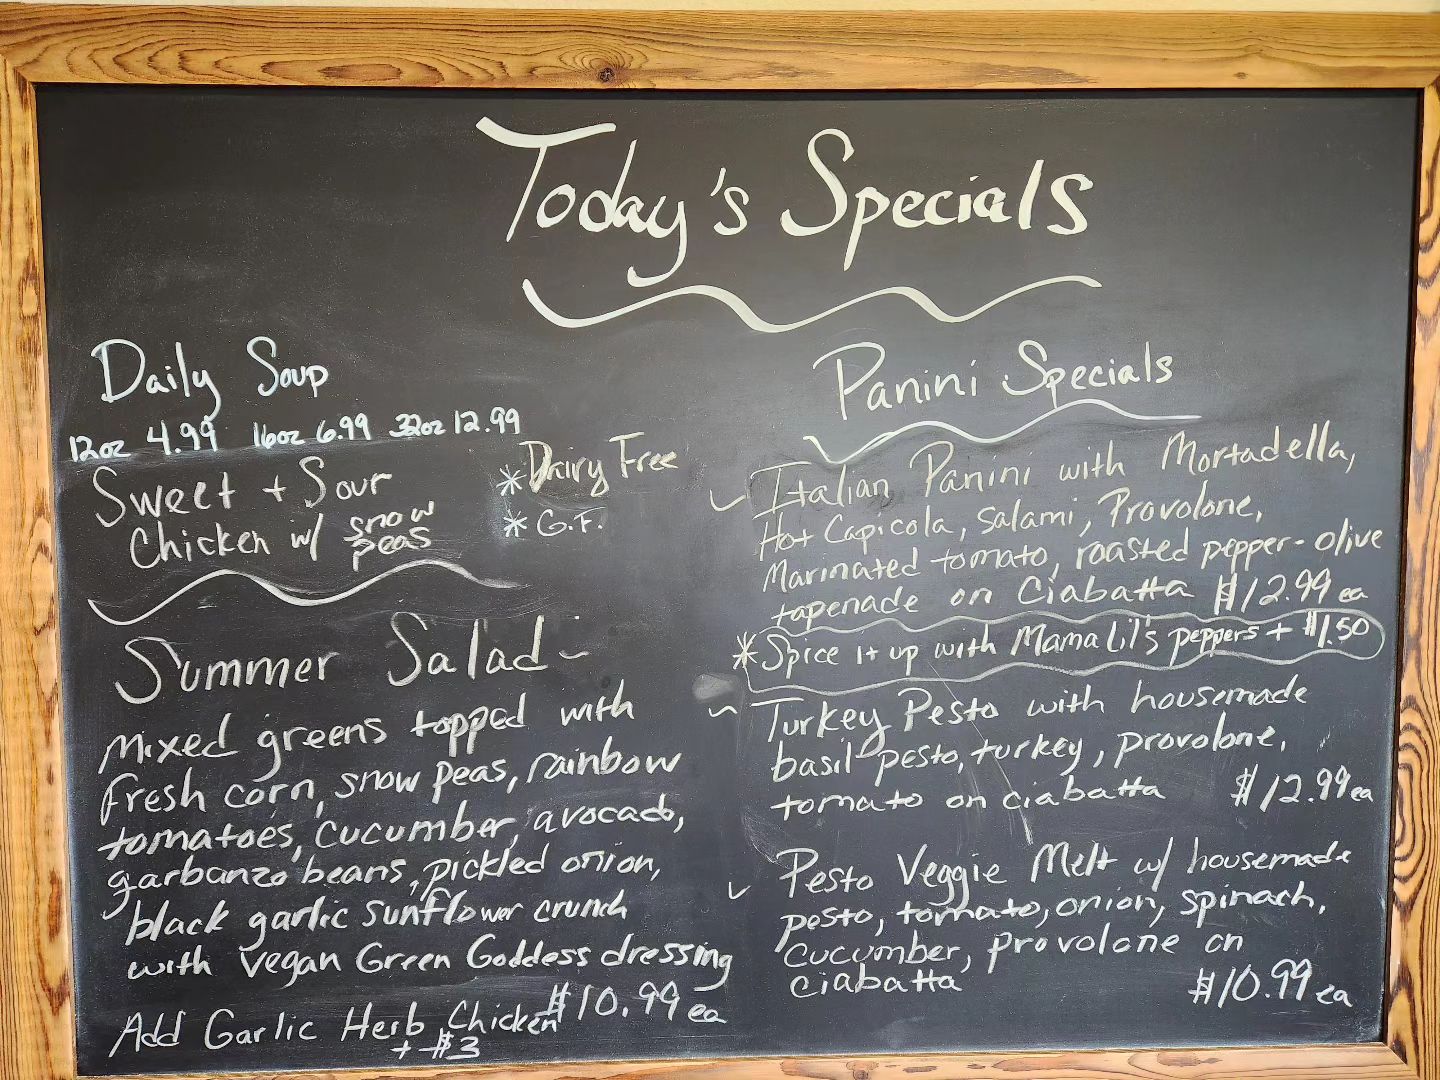 Today's Specials
Daily Soup
12oz 4.99 16oz 6.99 32oz 12.99
Sweet + Sour
Chicken w/ snow
peas
* Dairy Free
* G.F.
Summer Salad ~
Mixed greens topped with
fresh corn, snow peas, rainbow
tomatoes, cucumber, avocado,
garbanzo beans, pickled onion,
black garlic sunflower crunch
with vegan Green Goddess dressing
$10.99 ea
Add Garlic Herb Chicken
+ $3
Panini Specials
~ Italian Panini with Mortadella,
Hot Capicola, Salami, Provolone,
Marinated tomato, roasted pepper-olive
tapenade on Ciabatta $12.99 ea
* Spice it up with Mama Lil's peppers + $1.50
~ Turkey Pesto with housemade
basil pesto, turkey, provolone,
tomato on ciabatta $12.99 ea
~ Pesto Veggie Melt w/ housemade
pesto, tomato, onion, spinach,
cucumber, provolone on
ciabatta
$10.99 ea